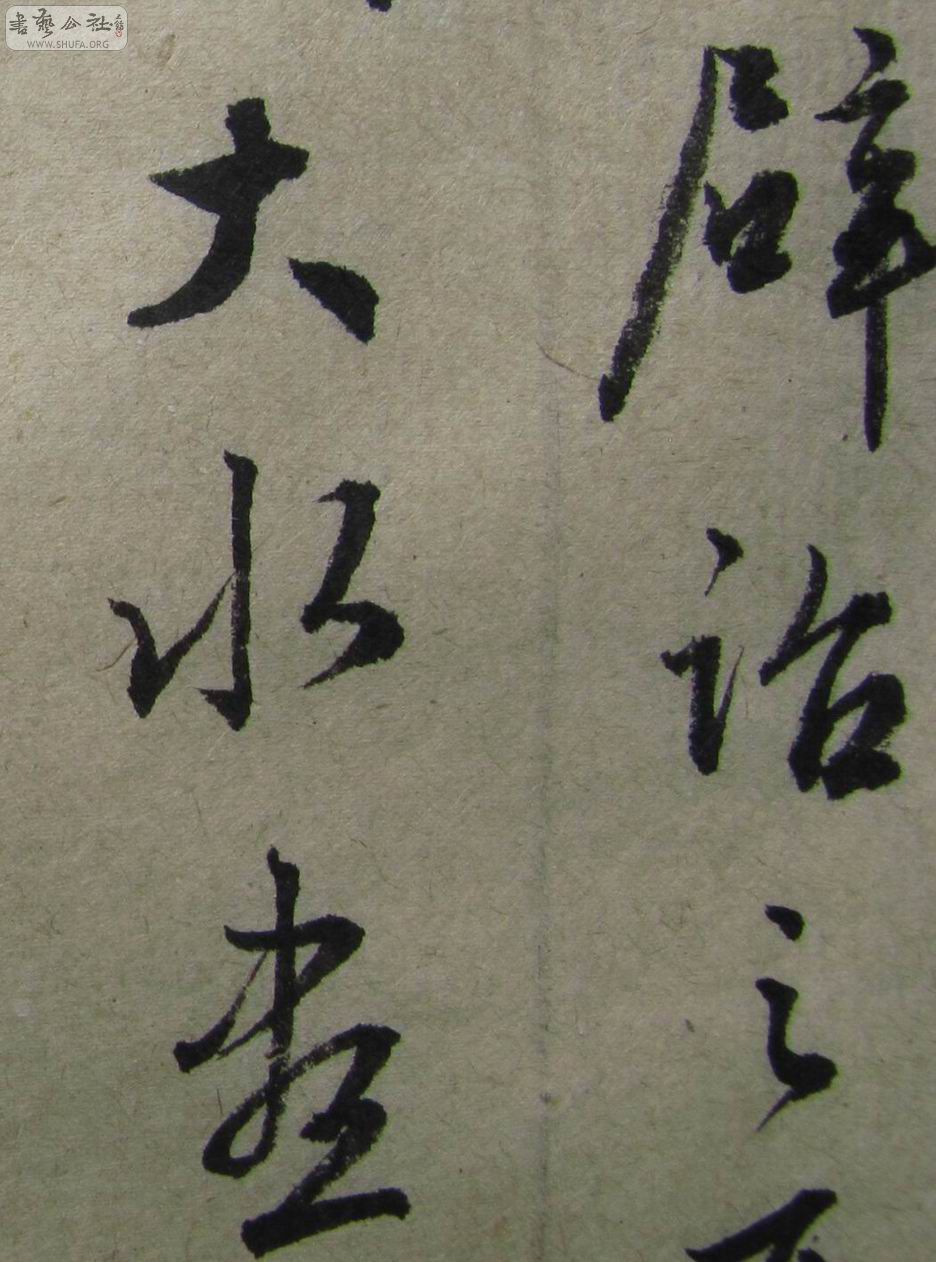 書藝公社
WWW.SHUFA.ORG
辟詔之
大水盡